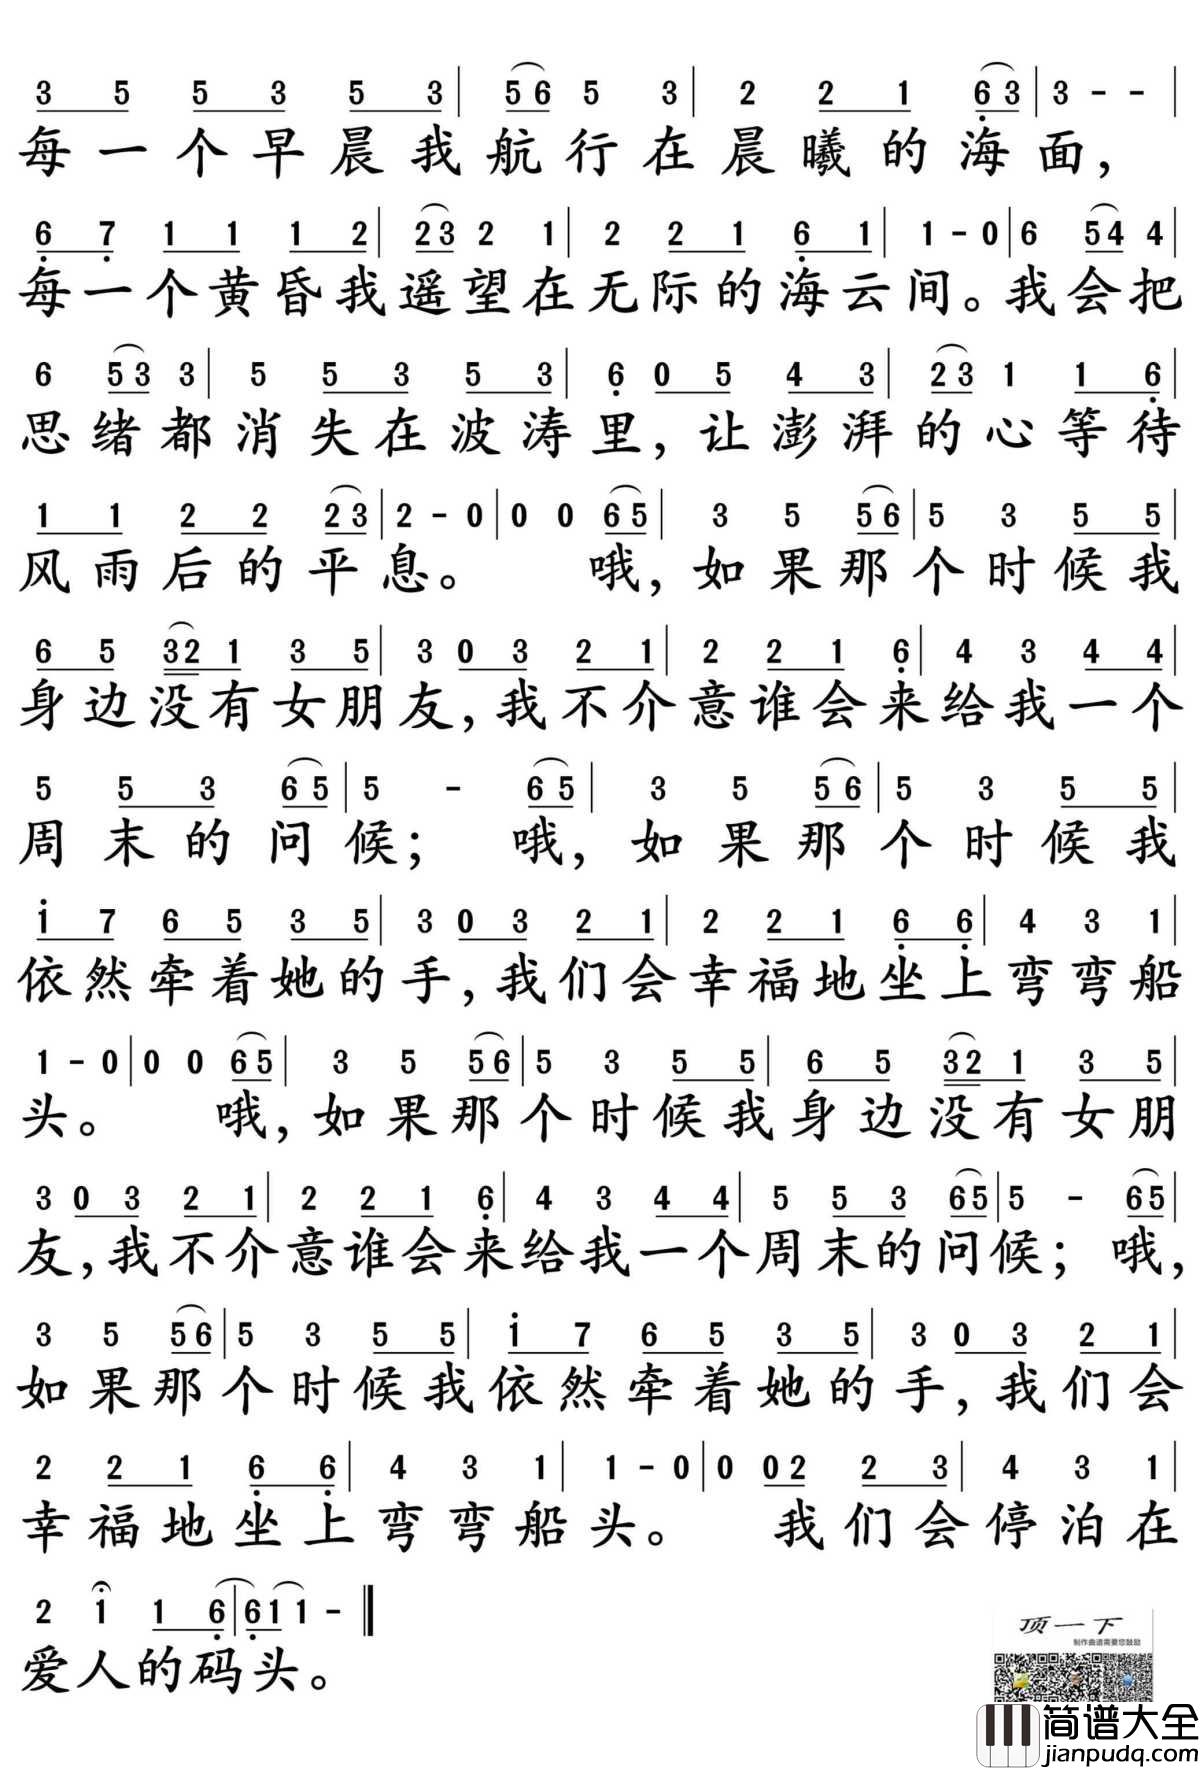 3 5 5 3 5 3 | 56 5 3 | 2 2 1 63 | 3 - - |
每一个早晨我航行在晨曦的海面，
6 7 1 1 1 2 | 23 2 1 | 2 2 1 6 1 | 1 - 0 | 6 54 4
每一个黄昏我遥望在无际的海云间。我会把
6 53 3 | 5 5 3 5 3 | 6 0 5 4 3 | 23 1 1 6 |
思绪都消失在波涛里，让澎湃的心等待
1 1 2 2 23 | 2 - 0 | 0 0 65 | 3 5 56 | 5 3 5 5 |
风雨后的平息。 哦，如果那个时候我
6 5 32 1 3 5 | 3 0 3 2 1 | 2 2 1 6 | 4 3 4 4 |
身边没有女朋友，我不介意谁会来给我一个
5 5 3 65 | 5 - 65 | 3 5 56 | 5 3 5 5 |
周末的问候； 哦，如果那个时候我
1 7 6 5 3 5 | 3 0 3 2 1 | 2 2 1 6 6 | 4 3 1 |
依然牵着她的手，我们会幸福地坐上弯弯船
1 - 0 | 0 0 65 | 3 5 56 | 5 3 5 5 | 6 5 32 1 3 5 |
头。 哦，如果那个时候我身边没有女朋
3 0 3 2 1 | 2 2 1 6 | 4 3 4 4 | 5 5 3 65 | 5 - 65 |
友，我不介意谁会来给我一个周末的问候；哦，
3 5 56 | 5 3 5 5 | 1 7 6 5 3 5 | 3 0 3 2 1 |
如果那个时候我依然牵着她的手，我们会
2 2 1 6 6 | 4 3 1 | 1 - 0 | 0 02 2 3 | 4 3 1 |
幸福地坐上弯弯船头。 我们会停泊在
2 1 1 6 | 61 1 - ‖
爱人的码头。
顶一下
制作曲谱需要您鼓励
简谱大全
jianpudq.com